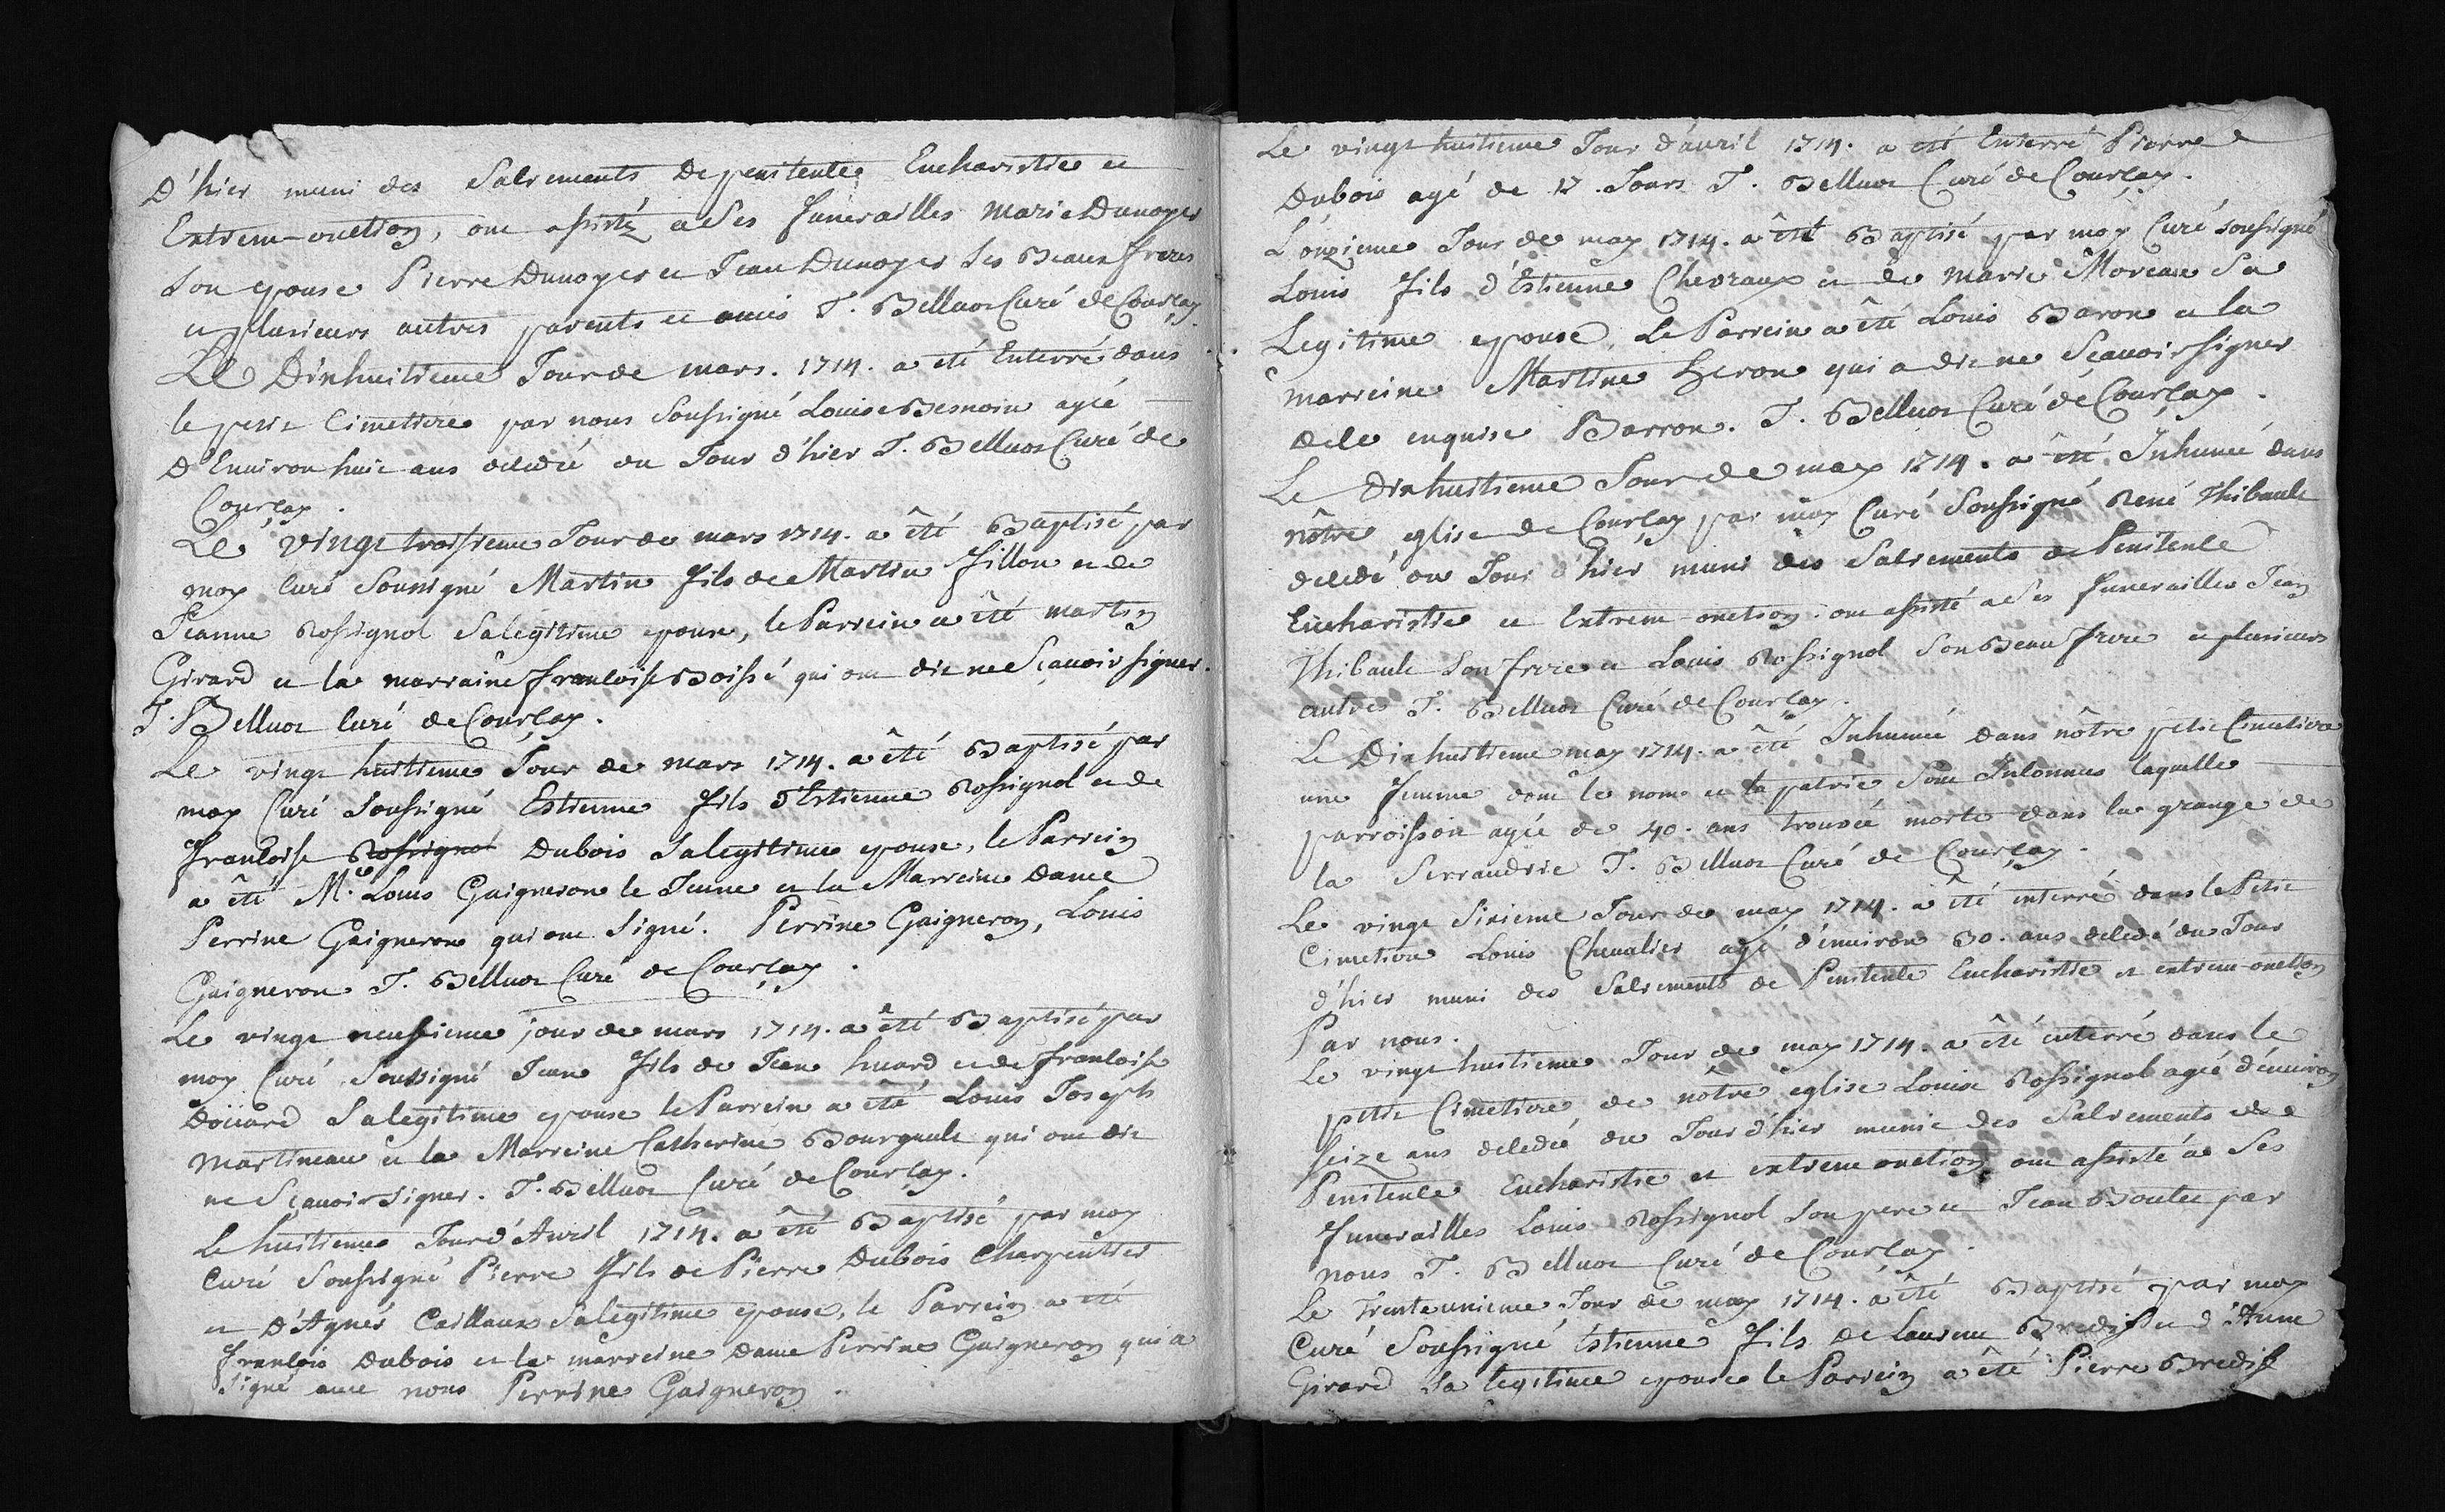 D'hier muni des Sacrements De penitence Eucharistie et
Extreme-onction, ont assisté a Ses funerailles Marie Dunoyer
Son epouse Pierre Dunoyer et Jean Dunoyer Ses Beaux freres
et plusieurs autres parents et amis T. Belluot Curé de Courçay.
Le Dixhuitieme Jour de mars. 1714. a été Enterré dans
le petit Cimetiere par nous Soussigné Louise Besnoin agée
D'Environ huit ans decedée du Jour d'hier T. Belluot Curé de
Courçay.
Le vingt troisieme Jour de mars 1714. a êté Baptisé par
moy Curé Soussigné Martin fils de Martin Fillon et de
Jeanne Rossignol Sa legitime epouse, le Parrein a êté martin
Girard et la marraine francoise Boissé qui ont dit ne Sçavoir signer.
T. Belluot Curé de Courçay.
Le vingt huitieme Jour de mars 1714. a êté Baptisé par
moy Curé Soussigné Estienne fils d'Estienne Rossignol et de
francoise Rossignol Dubois Sa legitime epouse, le Parrein
a êté Mr. Louis Gaigneron le Jeune et la Marreine Dame
Perrine Gaigneron qui ont Signé. Perrine Gaigneron, Louis
Gaigneron T. Belluot Curé de Courçay.
Le vingt neufieme jour de mars 1714. a êté Baptisé par
moy Curé Soussigné Jean fils de Jean huard et de francoise
Doüard Sa legitime epouse le Parrein a êté Louis Joseph
Martineau et la Marreine Catherine Bourgault qui ont dit
ne Sçavoir signer. T. Belluot Curé de Courçay.
Le huitieme Jour d'Avril 1714. a êté Baptisé par moy
Curé Soussigné Pierre fils de Pierre Dubois Charpentier
et D'Agnés Caillaux Sa legitime epouse, le Parrein a été
François Dubois et la marreine Dame Perrine Gaigneron qui a
signé avec nous Perrine Gaigneron.
Le vingt huitieme Jour d'avril 1714. a été Enterré Pierre
Dubois agé de 17. Jours T. Belluot Curé de Courçay.
L'onzieme Jour de may 1714. a êté Baptisé par moy Curé soussigné
Louis fils d'Estienne Chevraux et de Marie Moreau Sa
Legitime epouse, Le Parrein a êté Louis Baron et la
marreine Martine heron qui a dit ne Scavoir signer
de ce enquise Barron. T. Belluot Curé de Courçay.
Le Dixhuitieme Jour de may 1714. a êté Inhumé dans
nôtre eglise de Courçay par moy Curé Soussigné René Thibault
decedé du Jour d'hier muni des Sacrements de Penitence
Eucharistie et Extreme-onction. ont assisté a Ses funerailles Jean
Thibault Son frere et Louis Rossignol Son Beau frere et plusieurs
autres T. Belluot Curé de Courçay.
Le Dixhuitieme may 1714. a êté Inhumée dans nôtre petit Cimetiere
une femme dont le nom et la patrie Sont Inconnus laquelle
parroissoit agée de 40. ans trouvée morte dans la grange de
la Serraudrie T. Belluot Curé de Courçay.
Le vingt Sixieme Jour de may 1714. a êté interré dans le Petit
Cimetiere Louis Chevalier agé d'environ 30. ans decedé du Jour
d'hier muni des Sacrements de Penitence Eucharistie et extreme-onction
Par nous.
Le vingt huitieme Jour de may 1714. a êté enterré dans le
petit Cimetiere de nôtre eglise Louise Rossignol agée d'environ
seize ans decedée du Jour d'hier munie des Sacrements de
Penitence Eucharistie et extreme onction. ont assisté a Ses
funerailles Louis Rossignol Son pere et Jean Boutet par
nous T. Belluot Curé de Courçay.
Le Trente unieme Jour de may 1714. a êté Baptisé par moy
Curé Soussigné Estienne fils de Laurent Bredif et d'Anne
Girard Sa legitime epouse le Parrein a êté Pierre Bredif